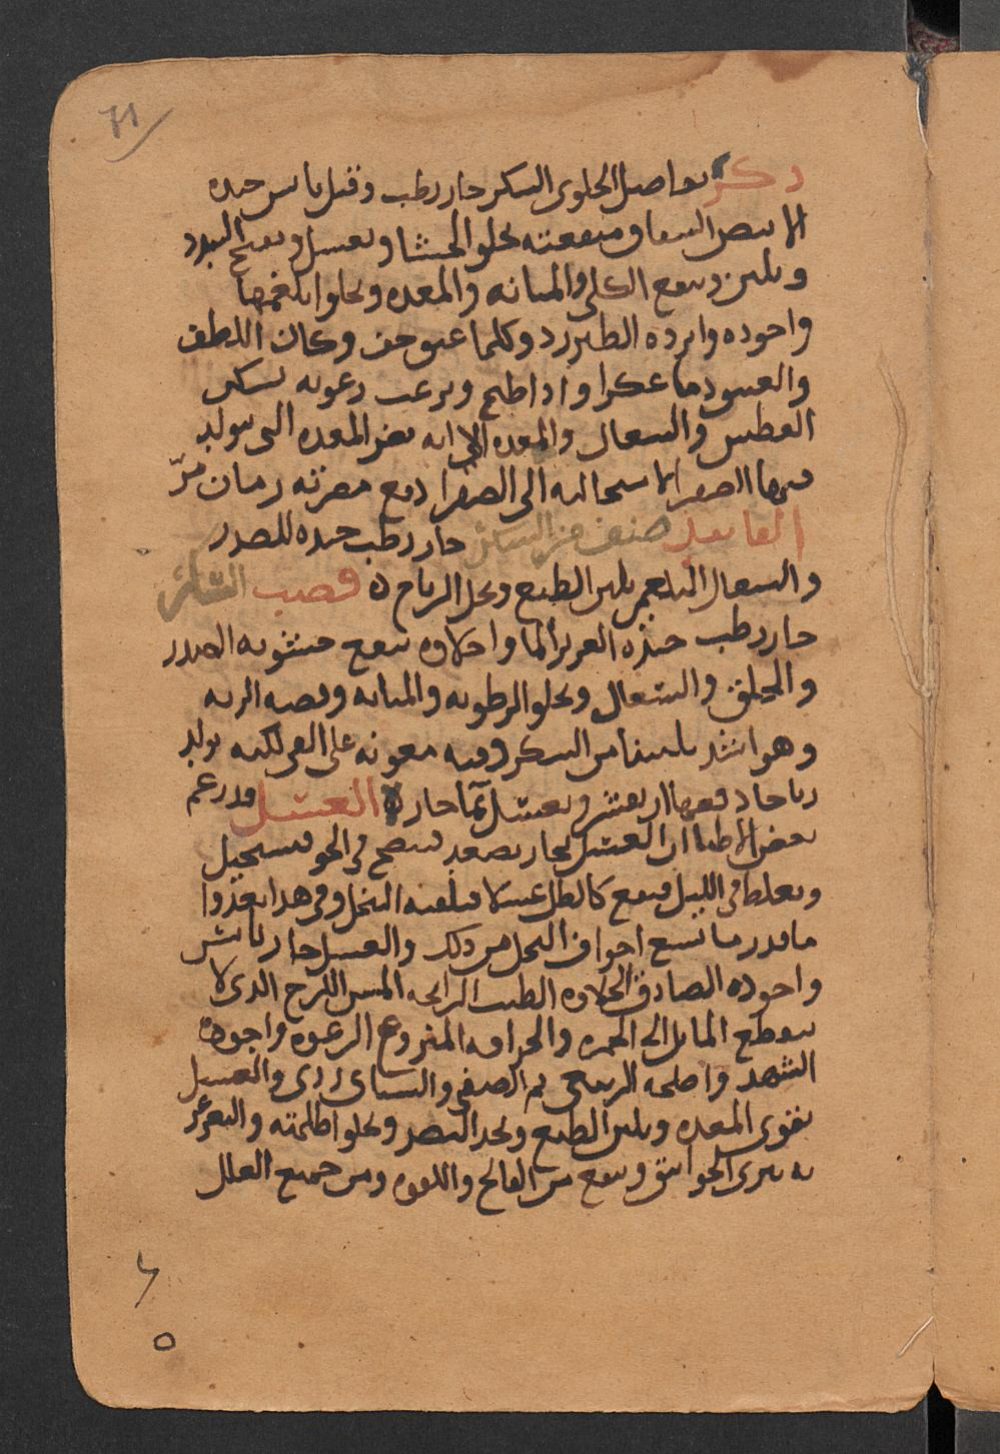 ٦١
ذكر تواصل الحلوى السكر حار رطب وقيل يابس جيده
الابيض الشفاف منفعته يجلو الحشا ويغسل ويفتح السدد
ويلين وينفع الكلى والمثانه والمعده ويجلوا بلغمها
واجوده وابرده الطبرزد وكلما عتق جف وكان الطف
والعتيق دما عكرا واذا طبخ ونزعت رغوته يسكن
العطش والسعال والمعده الا انه يضر المعده التى يتولد
فيها الصفرا لاستحالته الى الصفرا دفع مضرته رمان مزّ
الفانيد صنف من السكر حار رطب جيده للصدر
والسعال البلغمى يلين الطبع ويحل الرياح ه قصب السكر
حار رطب جيده الغزير الما واحلاوه ينفع خشونه الصدر
والحلق والسعال ويجلو الرطوبه والمثانه وقصبه الريه
وهو اشد تليينا من السكر وفيه معونه على القى لكنه يولد
رياحا دفعها ان يقشر ويغسل بما حار ه العسل قد زعم
بعض الاطبا ان العسل بخار يصعد فينضج فى الجو فيستحيل
ويغلظ فى الليل فيقع كالطل عسلا فيلقيه النحل وفى هذا يغذوا
ما قدر ما يسع اجواف النحل من ذلك والعسل حار يابس
واجوده الصادق الحلاوه الطيب الرايحه المتين اللزج الذى لا
ينقطع المايل الى الحمره والحرافه المنزوع الرغوه واجوده
الشهد واصلحه الربيعى ثم الصيفى والشتاى ردى والعسل
يقوى المعده ويلين الطبع ويحد البصر ويجلو اظلمته والتغرغر
به يبرى الخوانيق وينفع من الفالج واللقوه ومن جميع العلل